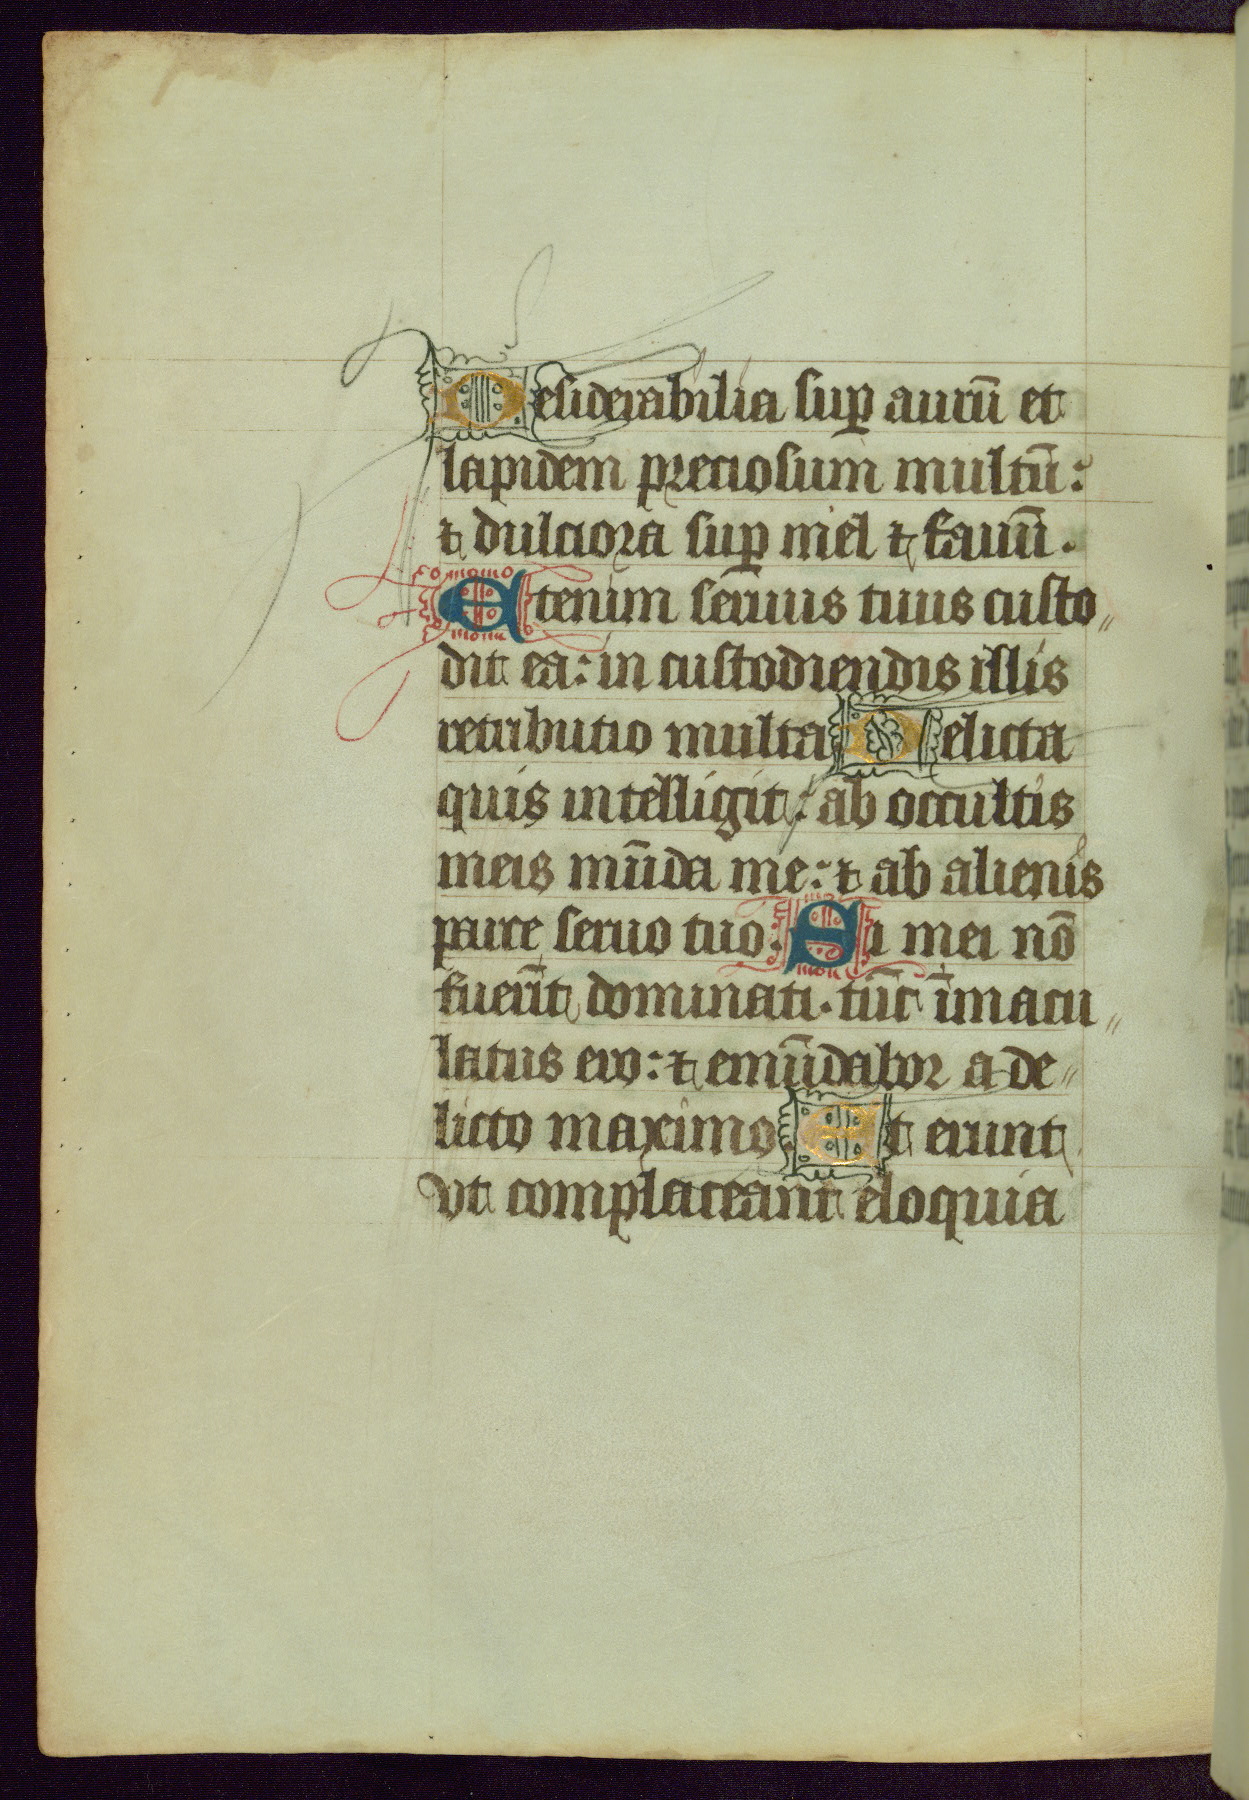 Desiderabilia suꝑ aurū et
lapidem preciosum multū:
⁊ dulciora suꝑ mel ⁊ fauū.
Etenim seruus tuus custo〃
dit ea: in custodiendis illis
retributio multa Delicta
quis intelligit: ab occultis
meis mūda me: ⁊ ab alienis
parce seruo tuo. Si mei nō
fuerīt dominati. tūc īmacu〃
latus ero: ⁊ emūdabor a de〃
licto maximo. Et erunt
vt complaceant eloquia